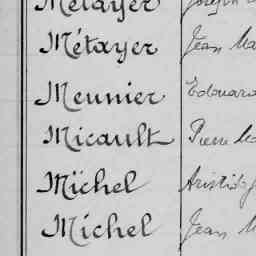 Métayer Joseph
Métayer Jean Ma
Meunier Edouard
Micault Pierre
Michel Aristide
Michel Jean M